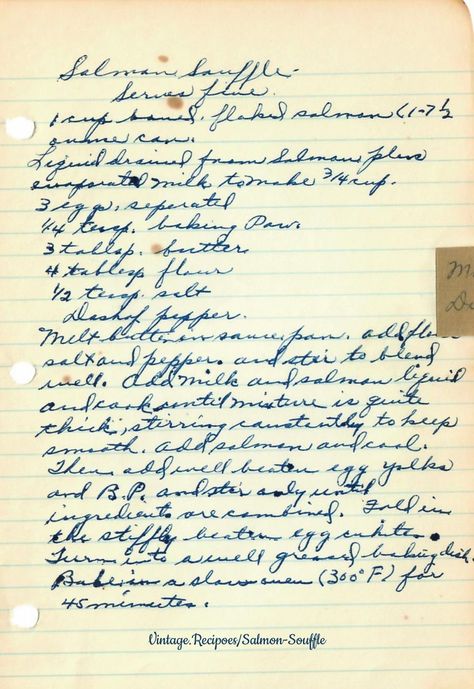 Salmon Souffle.
Serves five.
1 cup boned. flaked salmon (1-7 1/2
ounce can.
Liquid drained from Salmon plus
evaporated milk to make 3/4 cup.
3 eggs, seperated
1/4 teasp. baking Pow.
3 tablsp. butter
4 tablesp flour
1/2 teasp. salt
Dash of pepper.
Melt butter in saucepan. add flour
salt and pepper. and stir to blend
well. add milk and salmon liquid
and cook until mixture is quite
thick, stirring constantly to keep
smooth. add salmon and cool.
Then add well beaten egg yolks
and B.P. and stir only until
ingredients are combined. Fold in
the stiffly beaten egg whites.
Turn into a well greased baking dish.
Bake in a slow oven (300°F) for
45 minutes.
M
D
Vintage.Recipoes/Salmon-Souffle